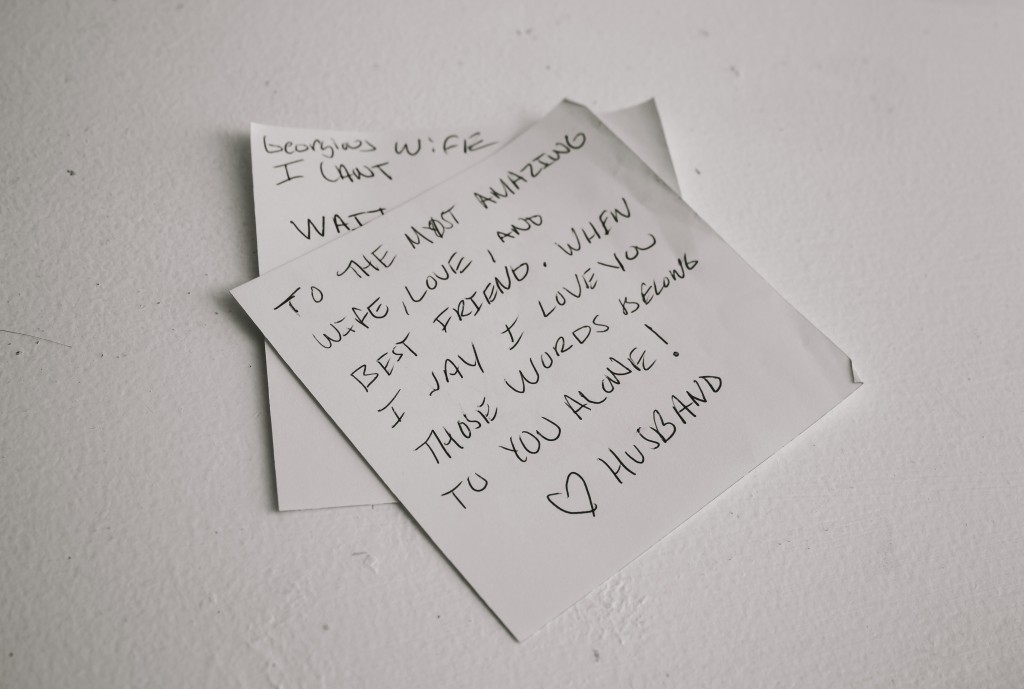 Georgious WiFE
I CANT
WAIT
TO THE MOST AMAZING
WiFE, LOVE, AND
BEST FRIEND. WHEN
I SAY I LOVE YOU
THOSE WORDS BELONG
TO YOU ALONE!
♡ HUSBAND